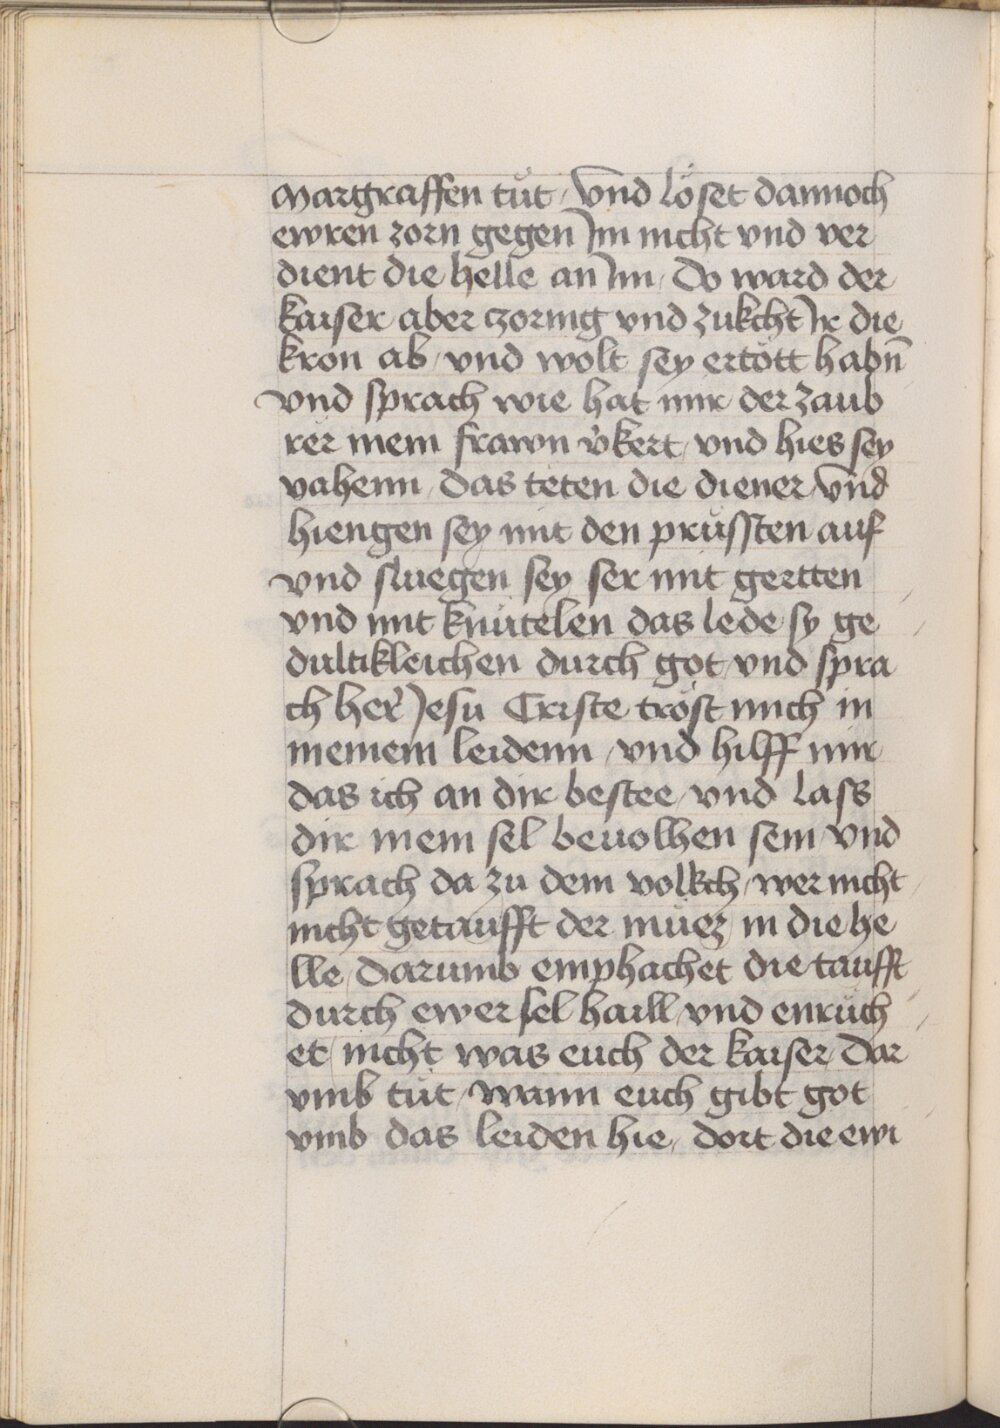 Margraffen tůt / Vnd löset dannoch
ewren zorn gegen Im nicht vnd ver
dient die helle an Im / Do ward der
kaiser aber czornig vnd zukcht Ir die
kron ab / vnd wolt sey ertött habn̄
vnd sprach wie hat mir der zaub
rer mein frawn v̉kert / vnd hies sey
vahenn / das teten die diener / vnd
hiengen sey mit den prüssten auf
vnd sluegen sey ser mit gertten
vnd mit knütelen das lede sy ge
dultikleichen durch got / vnd spra
ch her̉ Jesu Criste tröst mich in
meinem leidenn / vnd hilff mir
das ich an dir bestee / vnd lass
dir mein sel beuolhen sein / vnd
sprach da zu dem volkch / wer nicht
nicht getaufft der müez in die he
lle / Darumb emphachet die taufft
durch ewer sel haill / vnd enrůch
et / nicht was euch der kaiser / Dar
vmb tůt / wann euch gibt got
vmb das leiden hie / dort die ewi